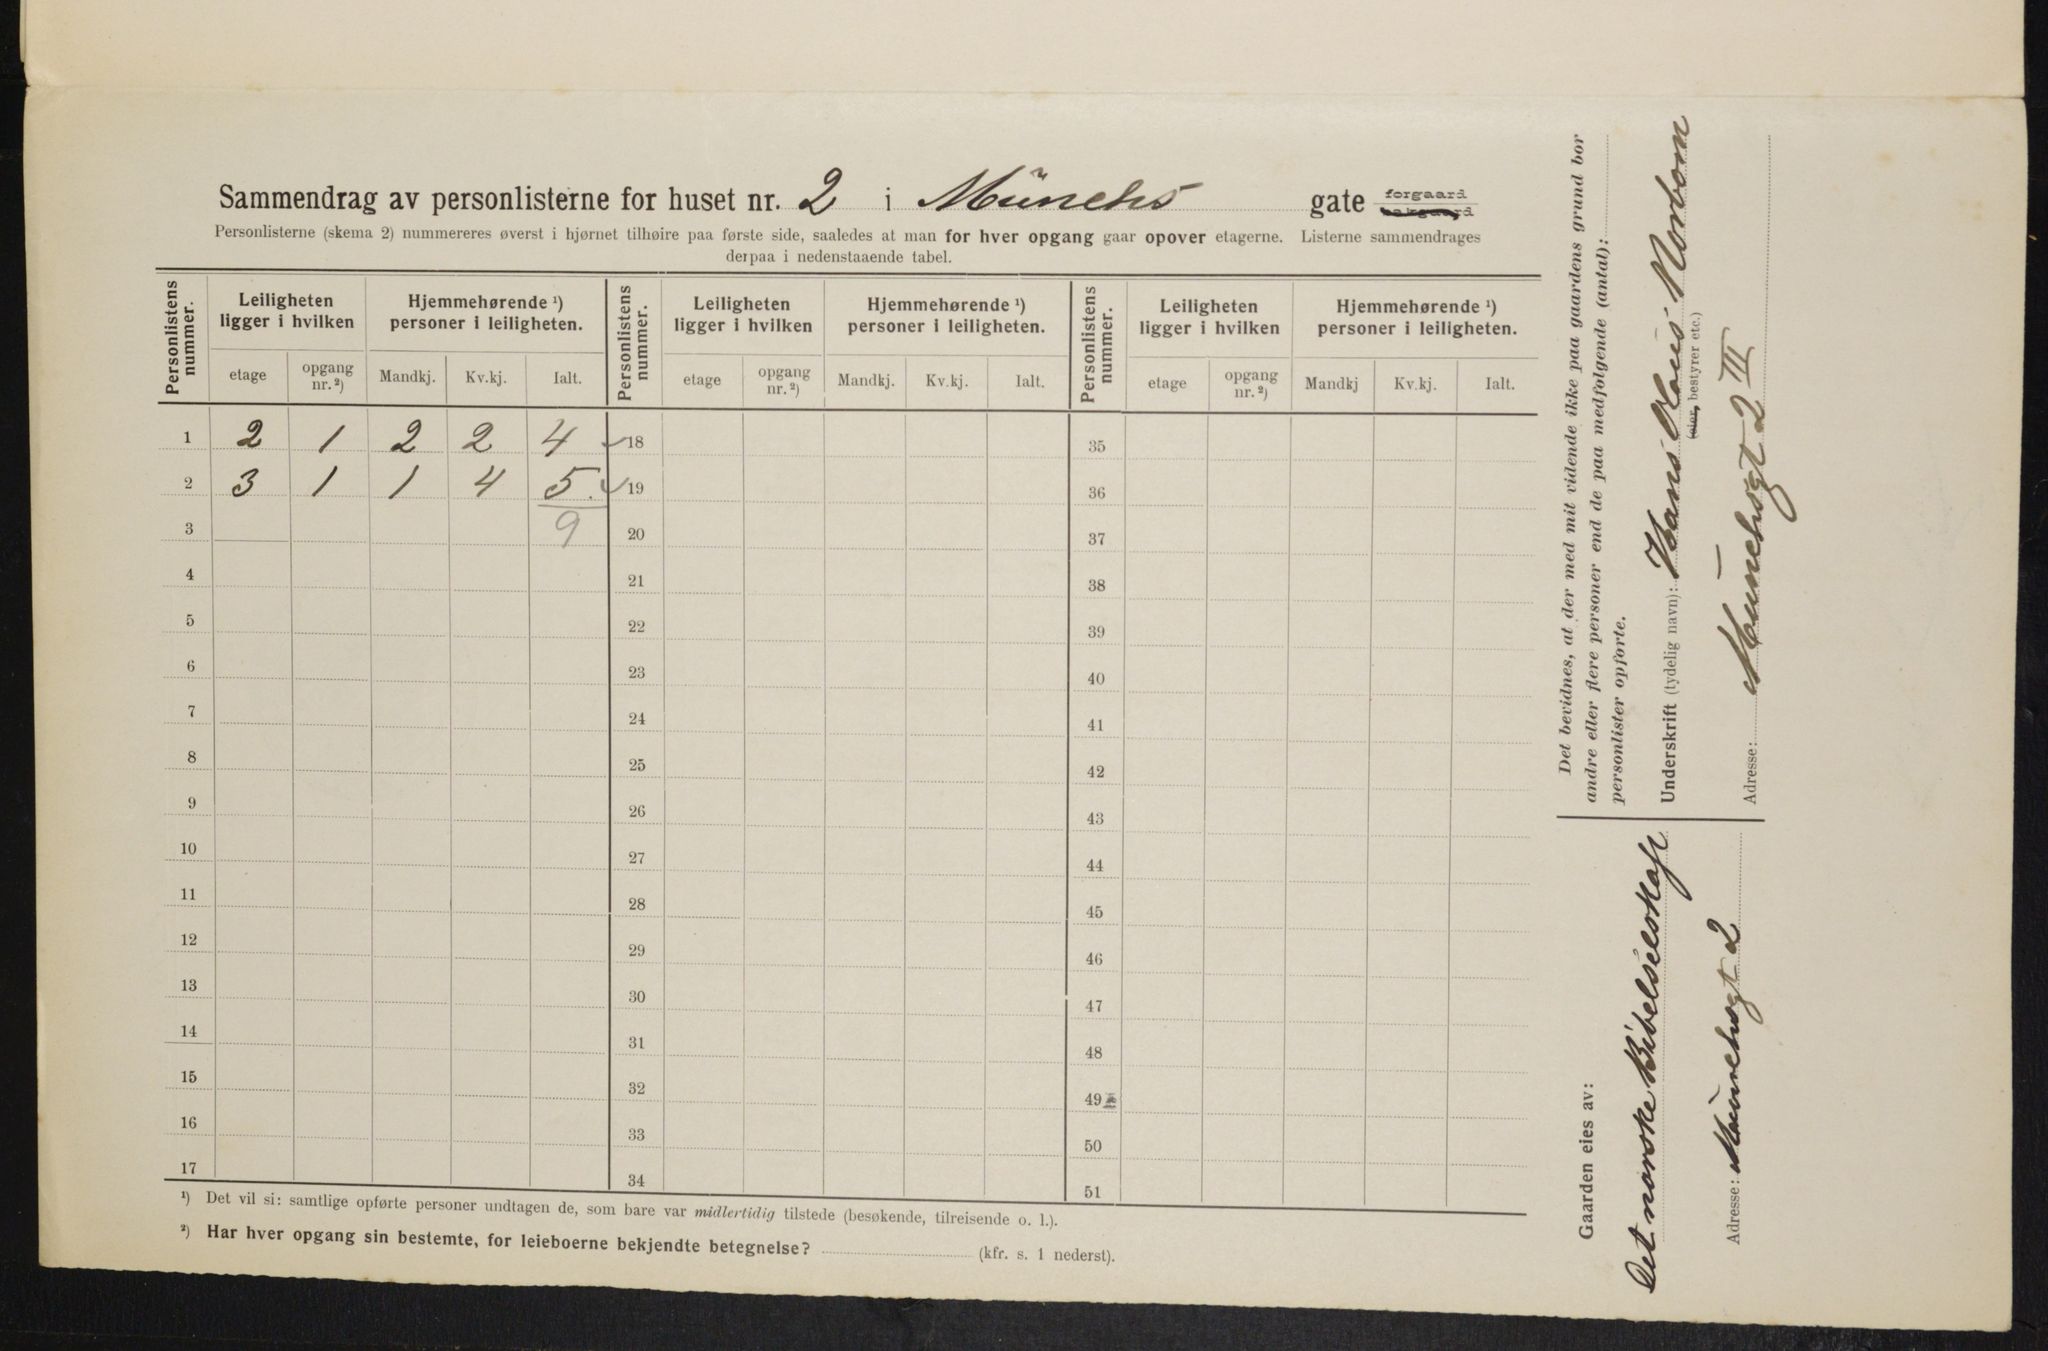 Sammendrag av personlisterne for huset nr. 2 i Münchs gate forgaard ~~bakgaard~~
Personlisterne (skema 2) nummereres øverst i hjørnet tilhøire paa første side, saaledes at man for hver opgang gaar opover etagerne. Listerne sammendrages
derpaa i nedenstaaende tabel.
Personlistens nummer. Leiligheten ligger i hvilken Hjemmehørende ¹) personer i leiligheten. Personlistens nummer. Leiligheten ligger i hvilken Hjemmehørende ¹) personer i leiligheten. Personlistens nummer. Leiligheten ligger i hvilken Hjemmehørende ¹) personer i leiligheten.
etage opgang nr. ²) Mandkj. Kv.kj. Ialt. etage opgang nr. ²) Mandkj. Kv.kj. Ialt. etage opgang nr. ²) Mandkj Kv.kj. Ialt.
1 2 1 2 2 4 18 35
2 3 1 1 4 5. 19 36
3 9 20 37
4 21 38
5 22 39
6 23 40
7 24 41
8 25 42
9 26 43
10 27 44
11 28 45
12 29 46
13 30 47
14 31 48
15 32 49
16 33 50
17 34 51
¹) Det vil si: samtlige opførte personer undtagen de, som bare var midlertidig tilstede (besøkende, tilreisende o. l.).
²) Har hver opgang sin bestemte, for leieboerne bekjendte betegnelse? (kfr. s. 1 nederst).
Det bevidnes, at der med mit vidende ikke paa gaardens grund bor
andre eller flere personer end de paa medfolgende (antal):
personlister opforte.
Underskrift (tydelig navn): Hans Claus Norbom
(~~eier,~~ bestyrer etc.)
Adresse: Münchsgt 2 III
Gaarden eies av:
Det norske Bibelselskap
Adresse: Münchsgt 2